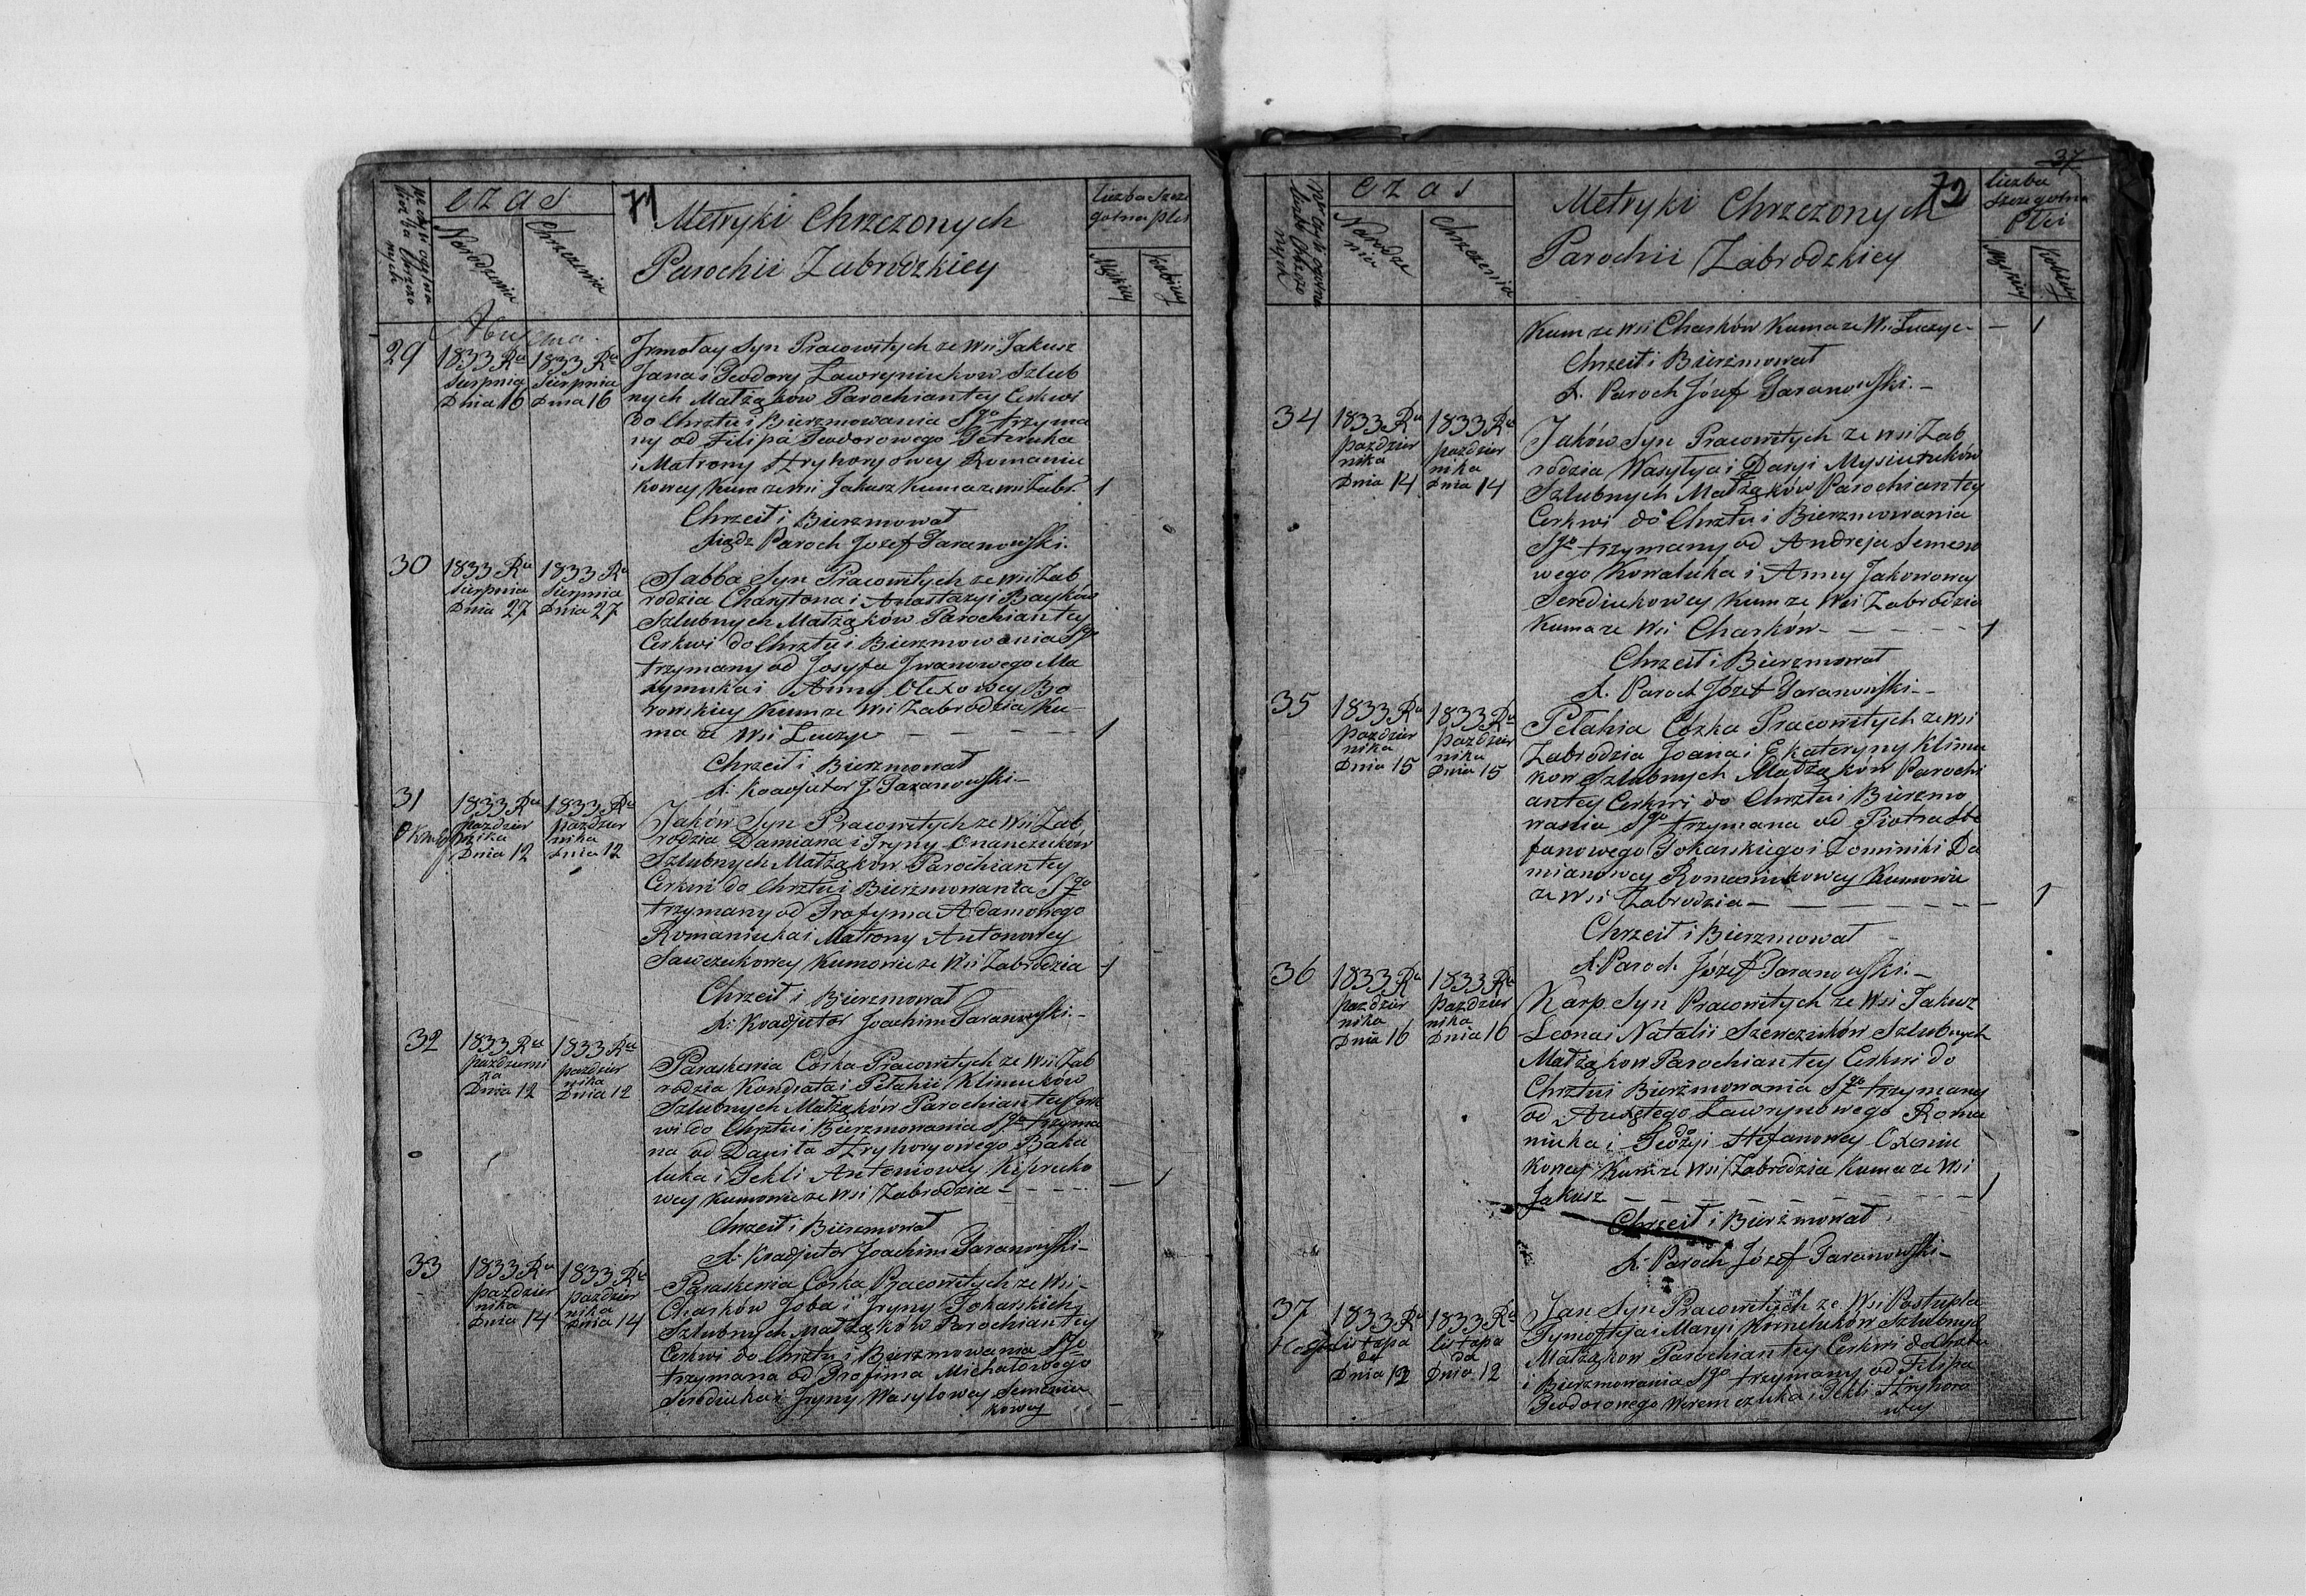 71
Metryki Chrzczonych
Parochii Zabrodzkiey
czas
Narodzenia
Chrzczenia
Liczba Szcze
gólna płci
Męzkiey
Kobiecey
29
1833 Ru
Sierpnia
Dnia 16
1833 Ru
Sierpnia
Dnia 16
Jrmołay Syn Pracowitych ze Wsi Jakusz
Jana i Teodory Ławryniuków Szlub
nych Małżąków Parochiantey Cerkwi
do Chrztu i Bierzmowania Sgo trzyma
ny od Filipa Teodorowego Petruka
i Matrony Hryhoryowey Romaniu
kowey Kum ze Wsi Jakusz Kuma ze Wsi Zabr. 1
Chrzcił i Bierzmował
Xiądz Paroch Jozef Taranowski.
30
1833 Ru
Sierpnia
Dnia 27
1833 Ru
Sierpnia
Dnia 27
Sabba Syn Pracowitych ze Wsi Zab
rodzia Charytona i Anastazyi Bayków
Szlubnych Małżąków Parochiantey
Cerkwi do Chrztu i Bierzmowania Sgo
trzymany od Josyfa Jwanowego Ma
zymuka i Anny Olexowey Bo
rowskiey Kum ze Wsi Zabrodzia Ku-
ma ze Wsi Łuczyc - - - - 1
Chrzcił i Bierzmował
X. Koadjutor J. Taranowski -
31
1833 Ru
pazdzier
nika
Dnia 12
1833 Ru
pazdzier
nika
Dnia 12
Jaków Syn Pracowitych ze Wsi Zab
rodzia Damiana i Jryny Onanczuków
Szlubnych Małżąków Parochiantey
Cerkwi do Chrztu i Bierzmowania Sgo
trzymany od Trofyma Adamowego
Romaniuka i Matrony Antonowey
Sawczukowey Kumowie ze Wsi Zabrodzia 1
Chrzcił i Bierzmował
X. Koadjutor Joachim Taranowski. -
32
1833 Ru
pazdzierni
ka
Dnia 12
1833 Ru
pazdzier
nika
Dnia 12
Paraskewia Córka Pracowitych ze Wsi Zab
rodzia Kondrata i Pełahii Klimuków
Szlubnych Małżąków Parochiantey Cerk
wi do Chrztu i Bierzmowania Sgo trzyma
na od Daniła Hryhoryowego Baka
luka i Tekli Antoniowey Kiprucko
wey Kumowie ze Wsi Zabrodzia - - - - 1
Chrzcił i Bierzmował
X. Koadjutor Joachim Taranowski -
33
1833 Ru
pazdzier
nika
Dnia 14
1833 Ru
pazdzier
nika
Dnia 14
Paraskewia Córka Pracowitych ze Wsi -
Charków Joba i Jryny Tokarskich
Szlubnych Małżąków Parochiantey
Cerkwi do Chrztu i Bierzmowania Sgo
trzymana od Trofima Michałowego
Serediuka i Jryny Wasylowey Semeniu
kowey
37
72
Metryki Chrzczonych
Parochii Zabrodzkiey
czas
Narodze
nia
Chrzczenia
Liczba
Szczegolna
Płci
Męzkiey
Kobiecey
Kum ze Wsi Charków Kuma ze Wsi Łuczyc - - 1
Chrzcił i Bierzmował
X. Paroch Józef Taranowski. -
34
1833 Ru
pazdzier
nika
Dnia 14
1833 Ru
pazdzier
nika
Dnia 14
Jaków Syn Pracowitych ze Wsi Zab
rodzia Wasyla i Daryi Mysiuruków
Szlubnych Małżąków Parochiantey
Cerkwi do Chrztu i Bierzmowania
Sgo trzymany od Andreja Semeno
wego Kowaluka i Anny Jakowowey
Serediukowey Kum ze Wsi Zabrodzia
Kuma ze Wsi Charków - - - - 1
Chrzcił i Bierzmował
X. Paroch Józef Taranowski - -
35
1833 Ru
pazdzier
nika
Dnia 15
1833 Ru
pazdzier
nika
Dnia 15
Pełahia Córka Pracowitych ze Wsi
Zabrodzia Joana i Ekateryny Klimu
kow Szlubnych Małżąków Parochi
antey Cerkwi do Chrztu i Bierzmo
wania Sgo trzymana od Piotra Ste
fanowego Tokarskiego i Dominiki Da
mianowey Romaniukowey Kumowie
ze Wsi Zabrodzia - - - - - 1
Chrzcił i Bierzmował
X. Paroch Józef Taranowski. -
36
1833 Ru
pazdzier
nika
Dnia 16
1833 Ru
pazdzier
nika
Dnia 16
Karp Syn Pracowitych ze Wsi Jakusz
Leona i Natalii Szewczuków Szlubnych
Małżąkow Parochiantey Cerkwi do
Chrztu i Bierzmowania Sgo trzymany
od Ławrynowego Roma
niuka i Stefanowey Oxeniu
kowey Kum ze Wsi Zabrodzia Kuma ze Wsi
Jakusz - - - - - - 1
Chrzcił i Bierzmował
X. Paroch Józef Taranowski -
37
1833 Ru
Listopa
da
Dnia 12
1833 Ru
Listopa
da
Dnia 12
Jan Syn Pracowitych ze Wsi Postupla
Tymofteja i Maryi Korneluków Szlubnych
Małżąkow Parochiantey Cerkwi do Chrztu
i Bierzmowania Sgo trzymany od Filipa
Teodorowego Weremczuka i Tekli Hryhoro
wey